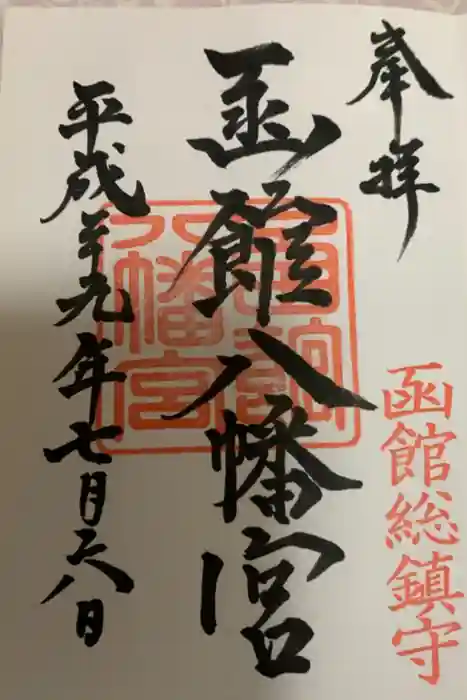 奉拝
函館総鎮守
函館八幡宮
函館
八幡宮
平成廿九年七月二八日